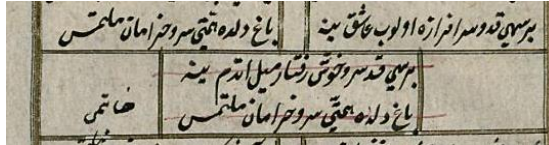 بر سهی قد و سرافرازه اولوب عاشق ینه
باغ دلده همتی سرو خرامان ملتمس
بر سهی قد سرو خوش رفتاره میل ایتدم ینه
باغ دلده همتی سرو خرامان ملتمس
خاتمی